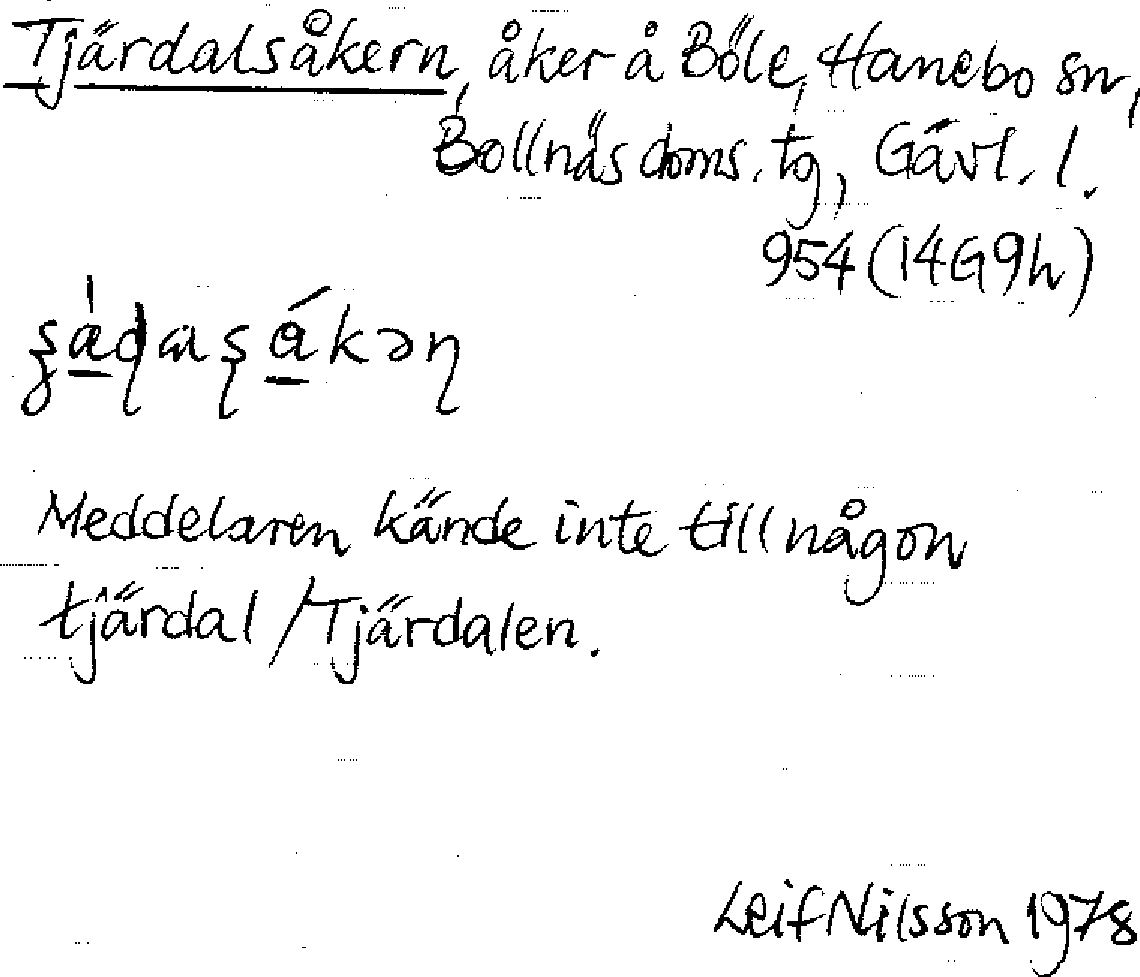 Tjärdalsåkern, åker å Böle, Hanebo sn,
Bollnäs doms. tg, Gävl. l.
954 (14G9h)
Meddelaren kände inte till någon
tjärdal / Tjärdalen.
Leif Nilsson 1978